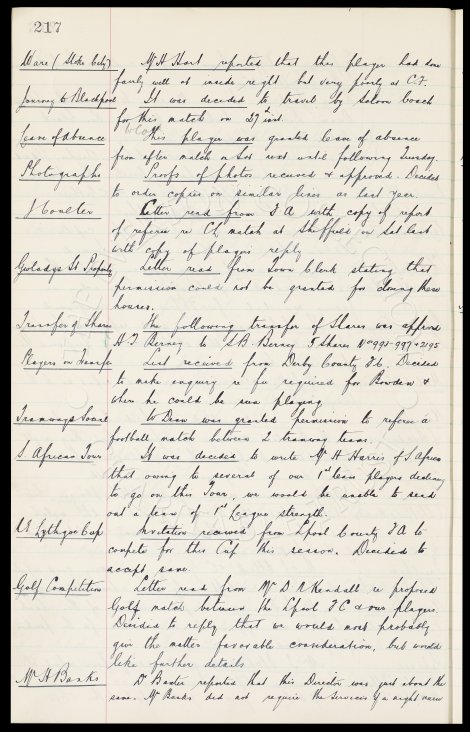 217
Ware (Stoke City) Mr H Hart reported that this player had done
fairly well at inside right but very poorly at C.F.
Journey to Blackpool It was decided to travel by Saloon Coach
for this match on 27th inst.
Leave of absence This player was granted leave of absence
from after match on Sat next until following Tuesday.
Photographs Proofs of photos received & approved. Decided
to order copies on similar lines as last year.
J Coulter Letter read from F A with copy of report
of referee re CL match at Sheffield on Sat last
with copy of players reply
Gwladys St Property Letter read from Town Clerk stating that
permission could not be granted for closing these
houses.
Transfer of Shares The following transfer of Shares was approved
H. T Berney to S B Berney 5 Shares Nos 993-997 & 2195
Players on Transfer List received from Derby County F.C. Decided
to make enquiry re fee required for Bowden &
when he could be seen playing
Tramways Social W Dean was granted permission to referee a
football match between 2 tramway teams.
S. African Tour It was decided to write Mr H Harris of S Africa
that owing to several of our 1st team players declining
to go on this Tour, we would be unable to send
out a team of 1st League strength.
Lythgoe Cup Invitation received from Lpool County F A to
compete for this Cup this season. Decided to
accept same.
Golf Competition Letter read from Mr D R Kendall re proposed
Golf match between the L'pool F C & our players.
Decided to reply that we would most probably
give the matter favorable consideration, but would
like further details
Mr H Banks Dr Baxter reported that this Director was just about the
same. Mr Banks did not require the Services of a night nurse